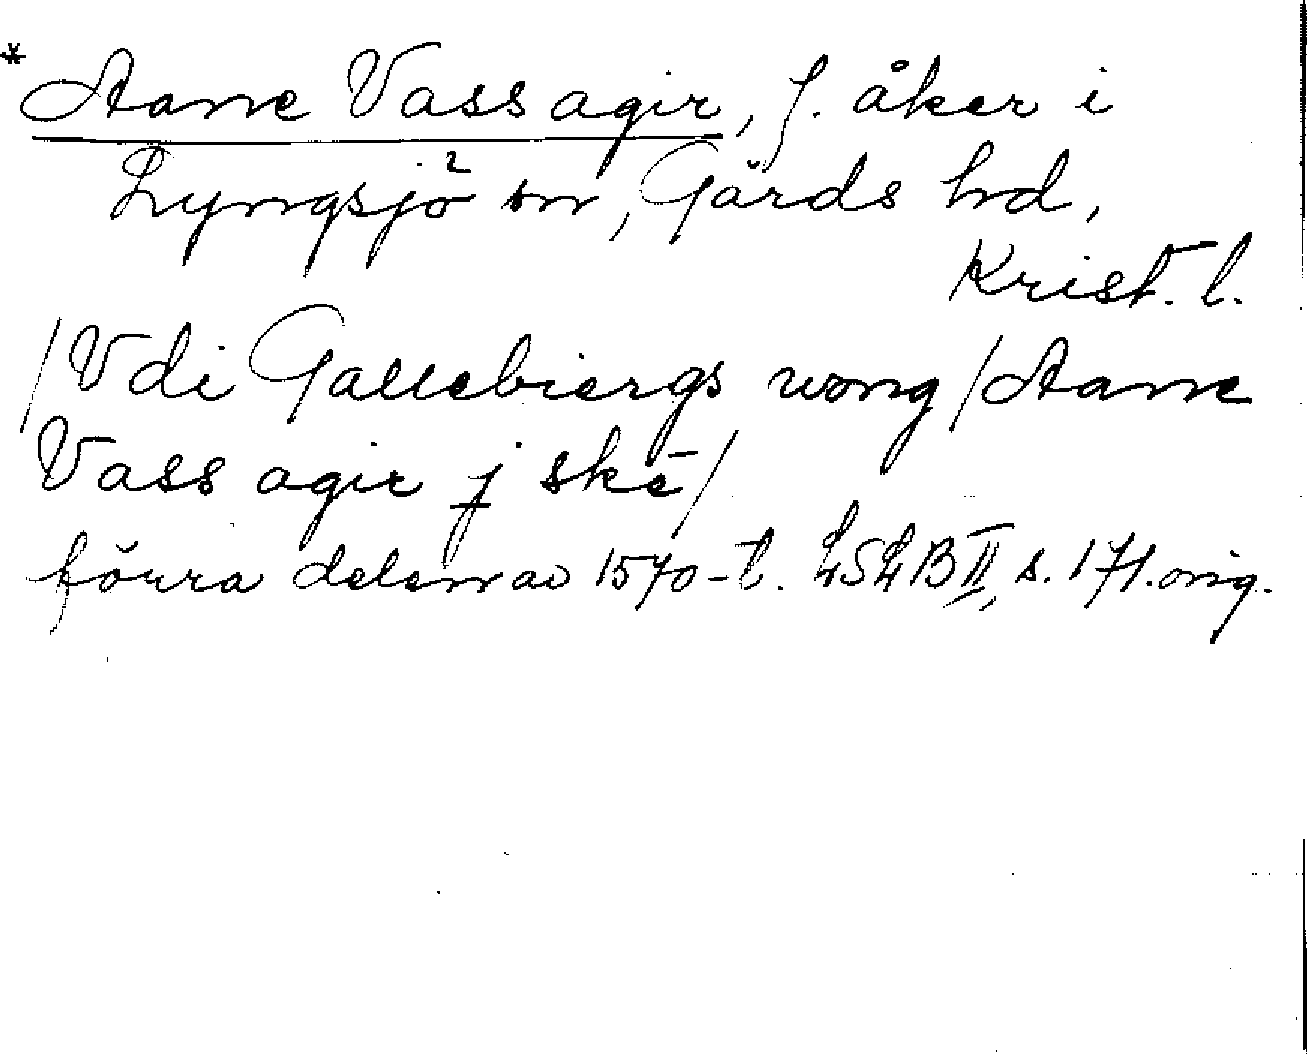 * Aarre Vass agir, f. åker i
Lyngsjö² sn, Gärds hd,
Krist. l.
/Vdi Gallebiergs wong/Aarre
Vass agir j ske/
förra delen av 1570-t. LSLB II, s. 171.orig.